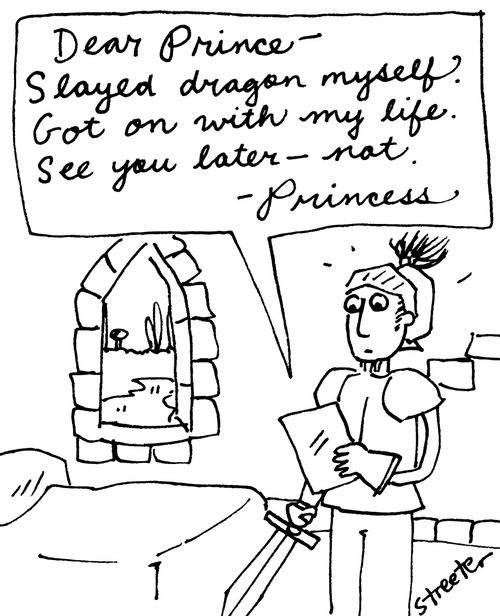 Dear Prince—
Slayed dragon myself.
Got on with my life.
See you later — not.
- Princess
streeter